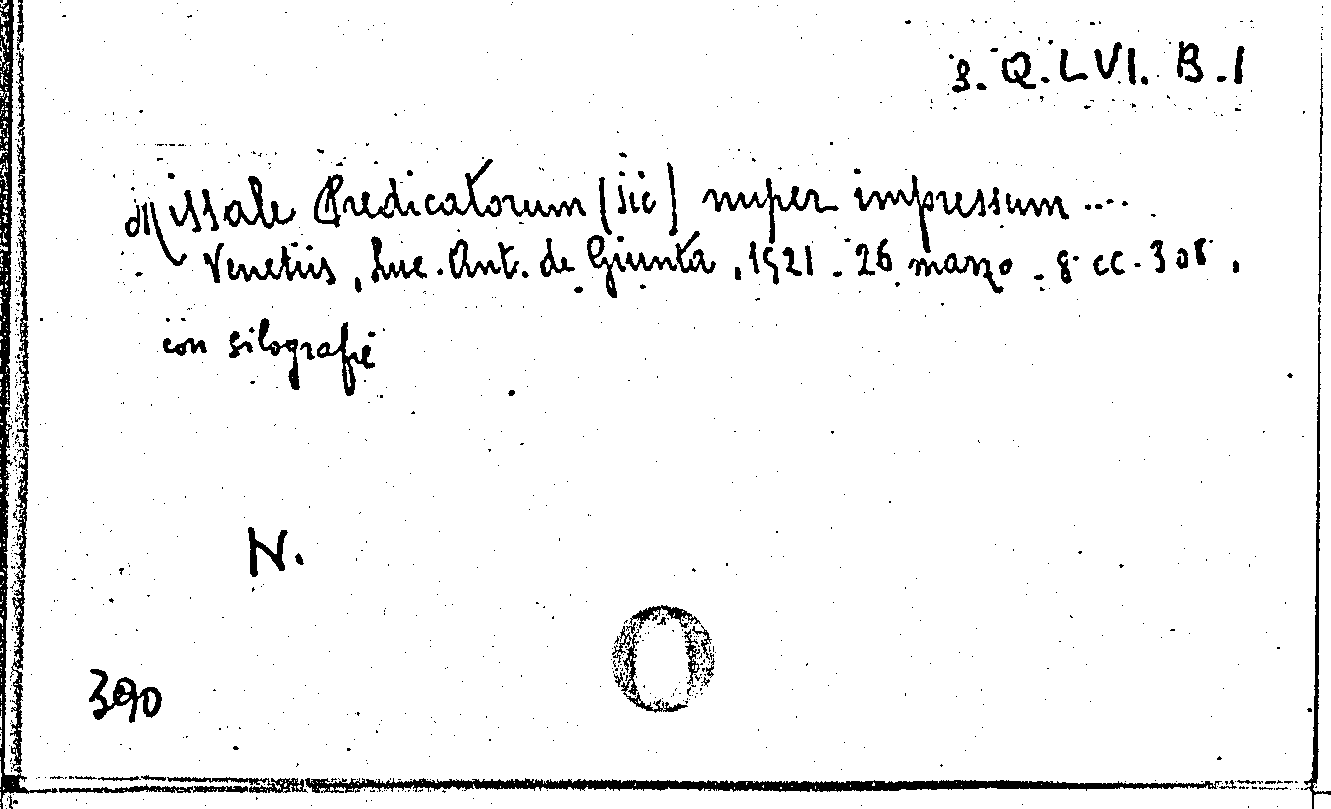 3. Q. LVI. B. 1
Missale Predicatorum (sic) nuper impressum ....
Venetiis, Luc. Ant. de Giunta, 1521 - 26 marzo - 8° cc. 308,
con silografie
N.
390